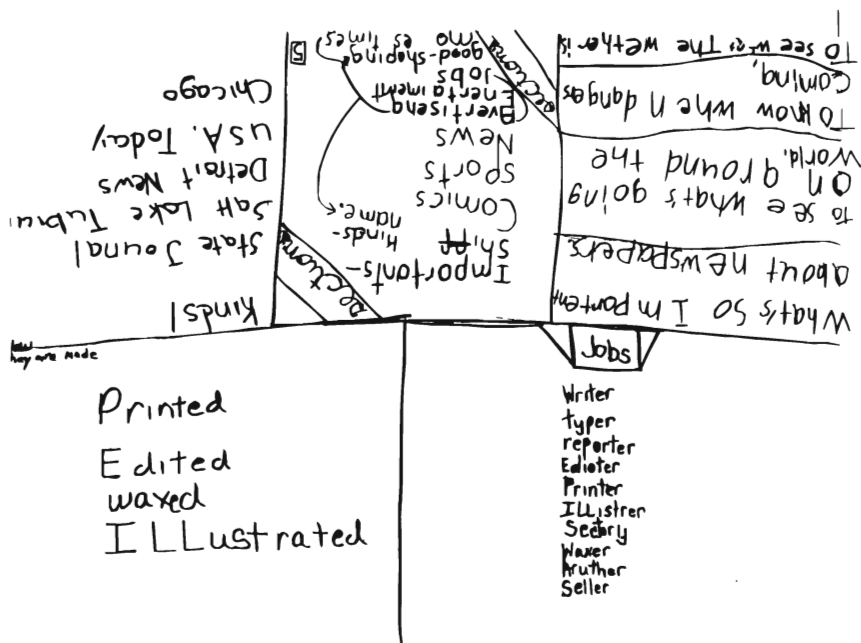 What's so Important
about newspapers.
to see what's going
on around the
world.
To know when dangers
coming,
To see wes The wether is
sections
Importants-
Shiff
Comics
sports
News
Evertiseng
Entertaiment
Jobs
good-shoping
mo es times
Kinds-
name.s
sections
5
Kinds!
State Journal
Salt Lake Tubru.
Detrait News
U.S.A. Today
Chicago
how
they are made
Printed
Edited
waxed
ILLustrated
Jobs
Writer
typer
reporter
Edioter
Printer
ILListrer
Sectory
Waxer
Aruther
Seller